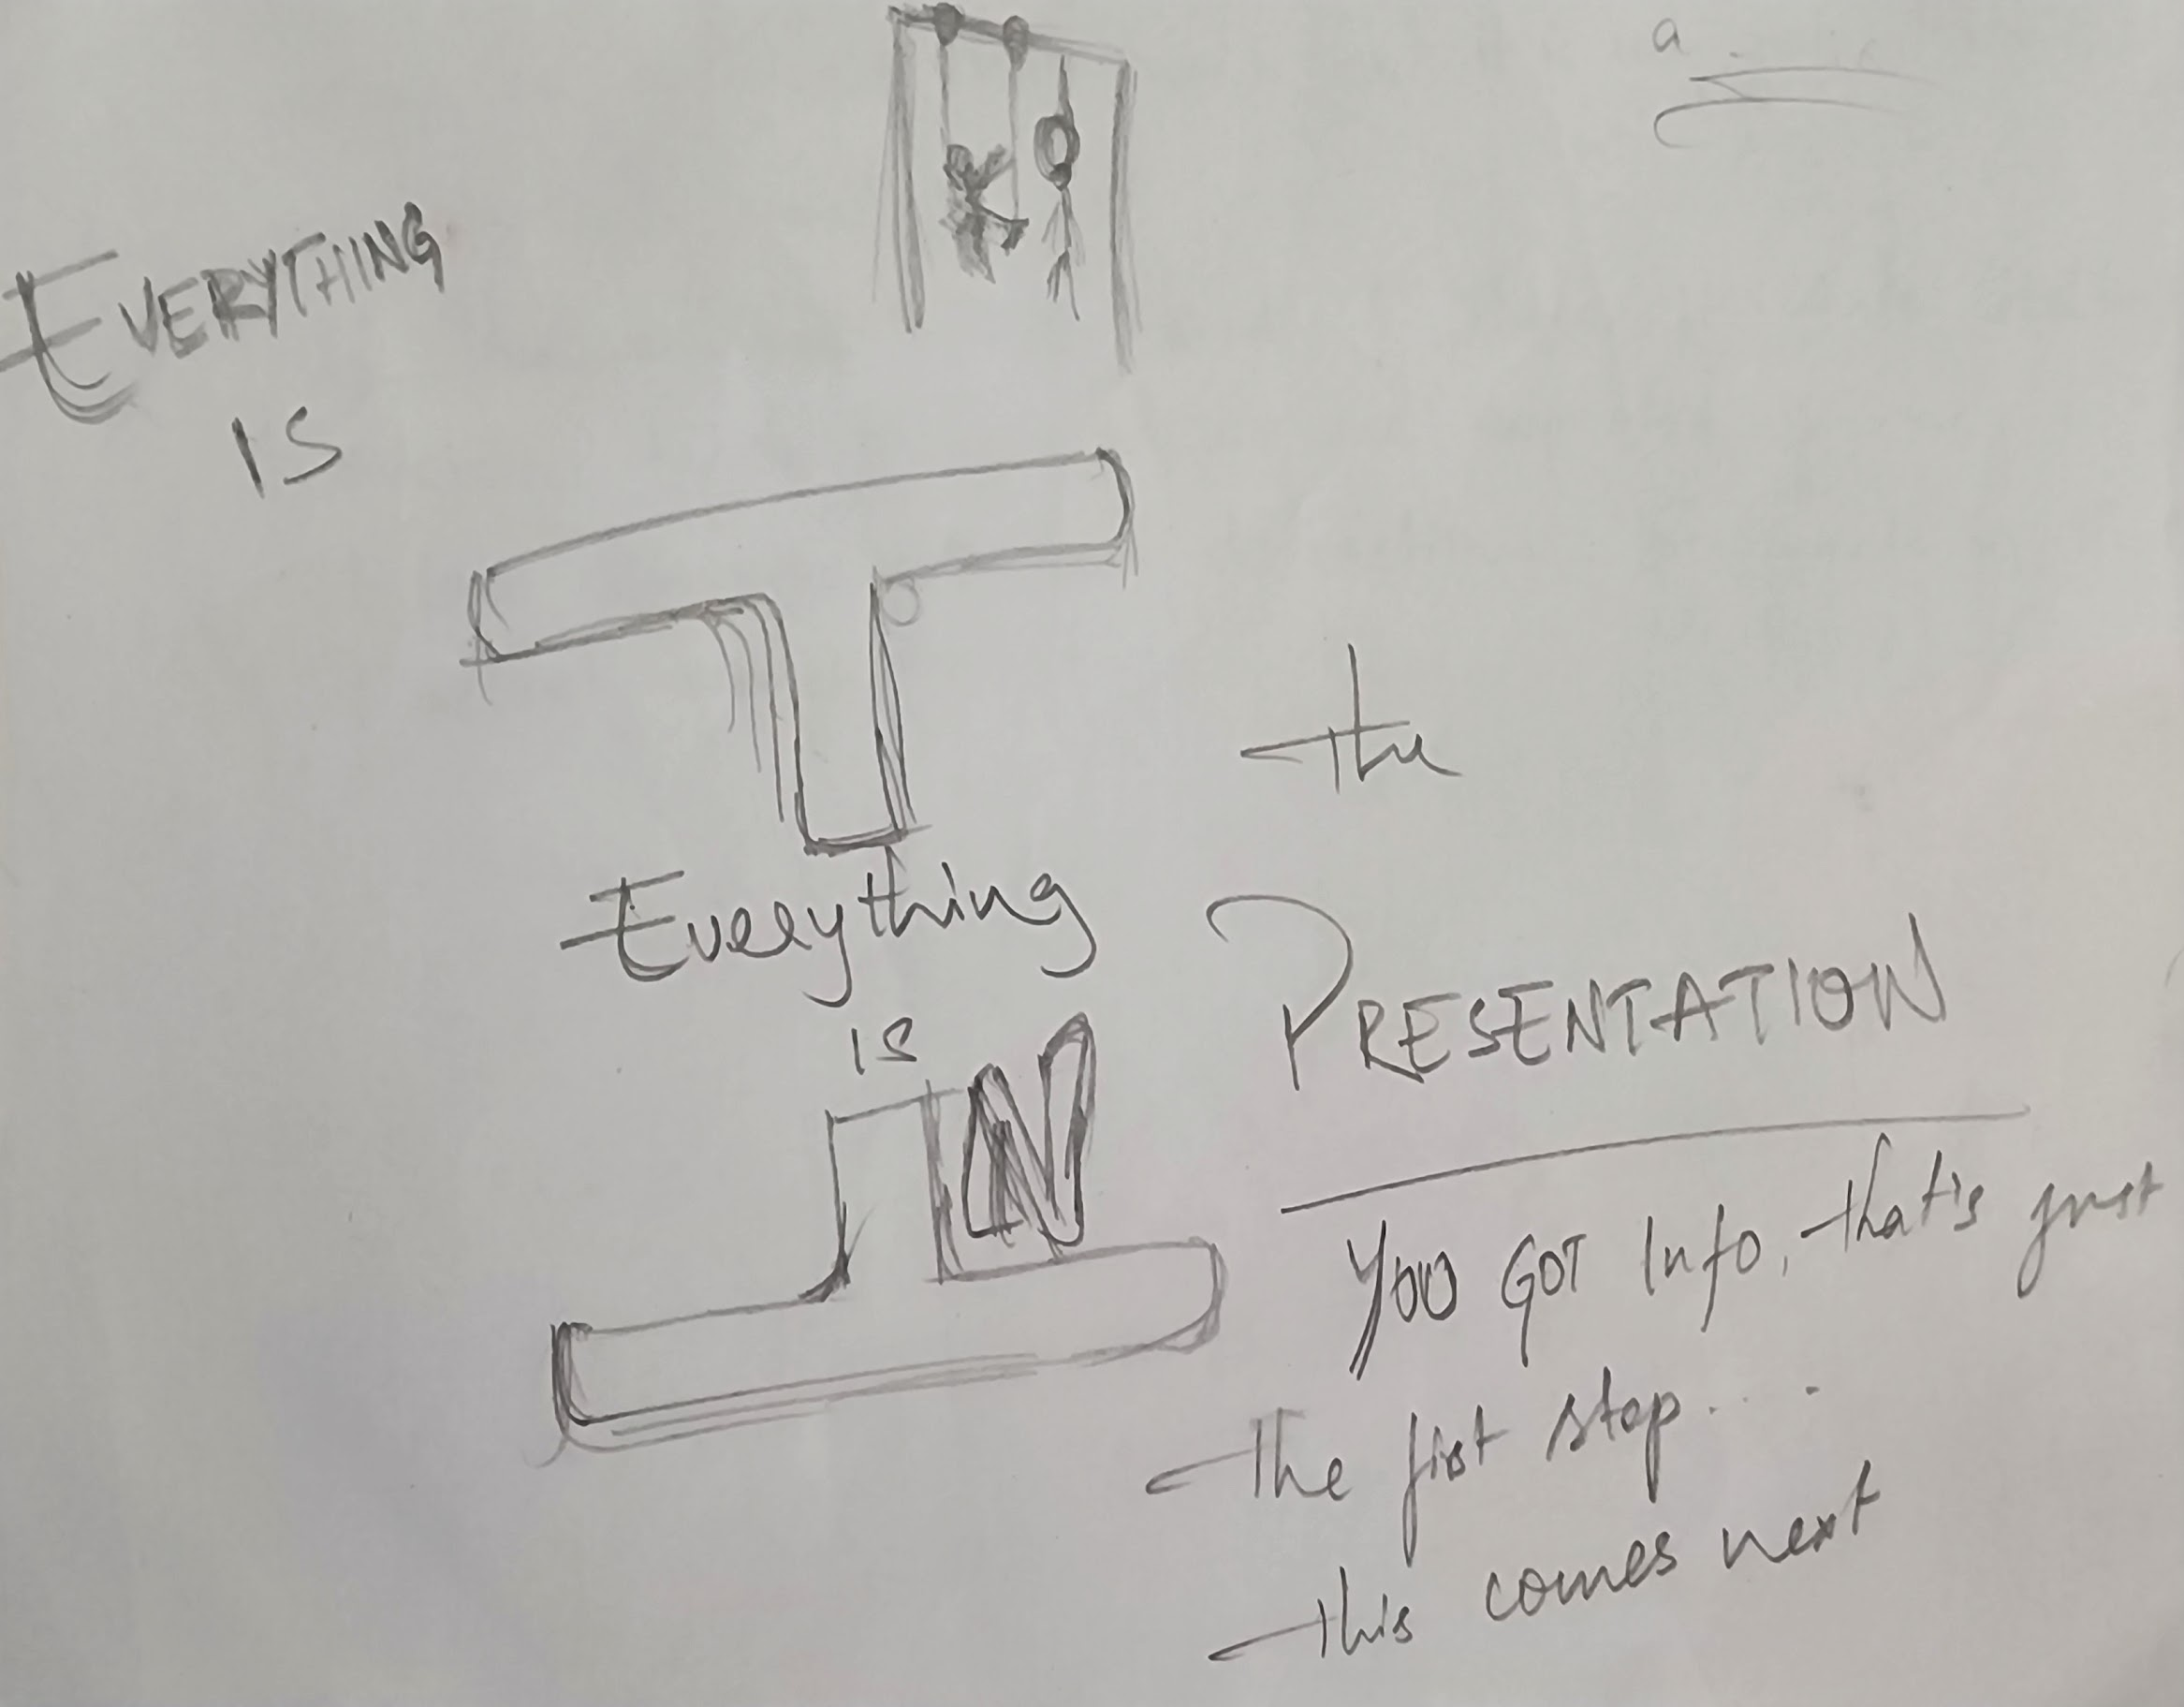 EVERYTHING
IS
T
the
Everything
is
IN
PRESENTATION
YOU GOT Info, that's just
the first step...
this comes next